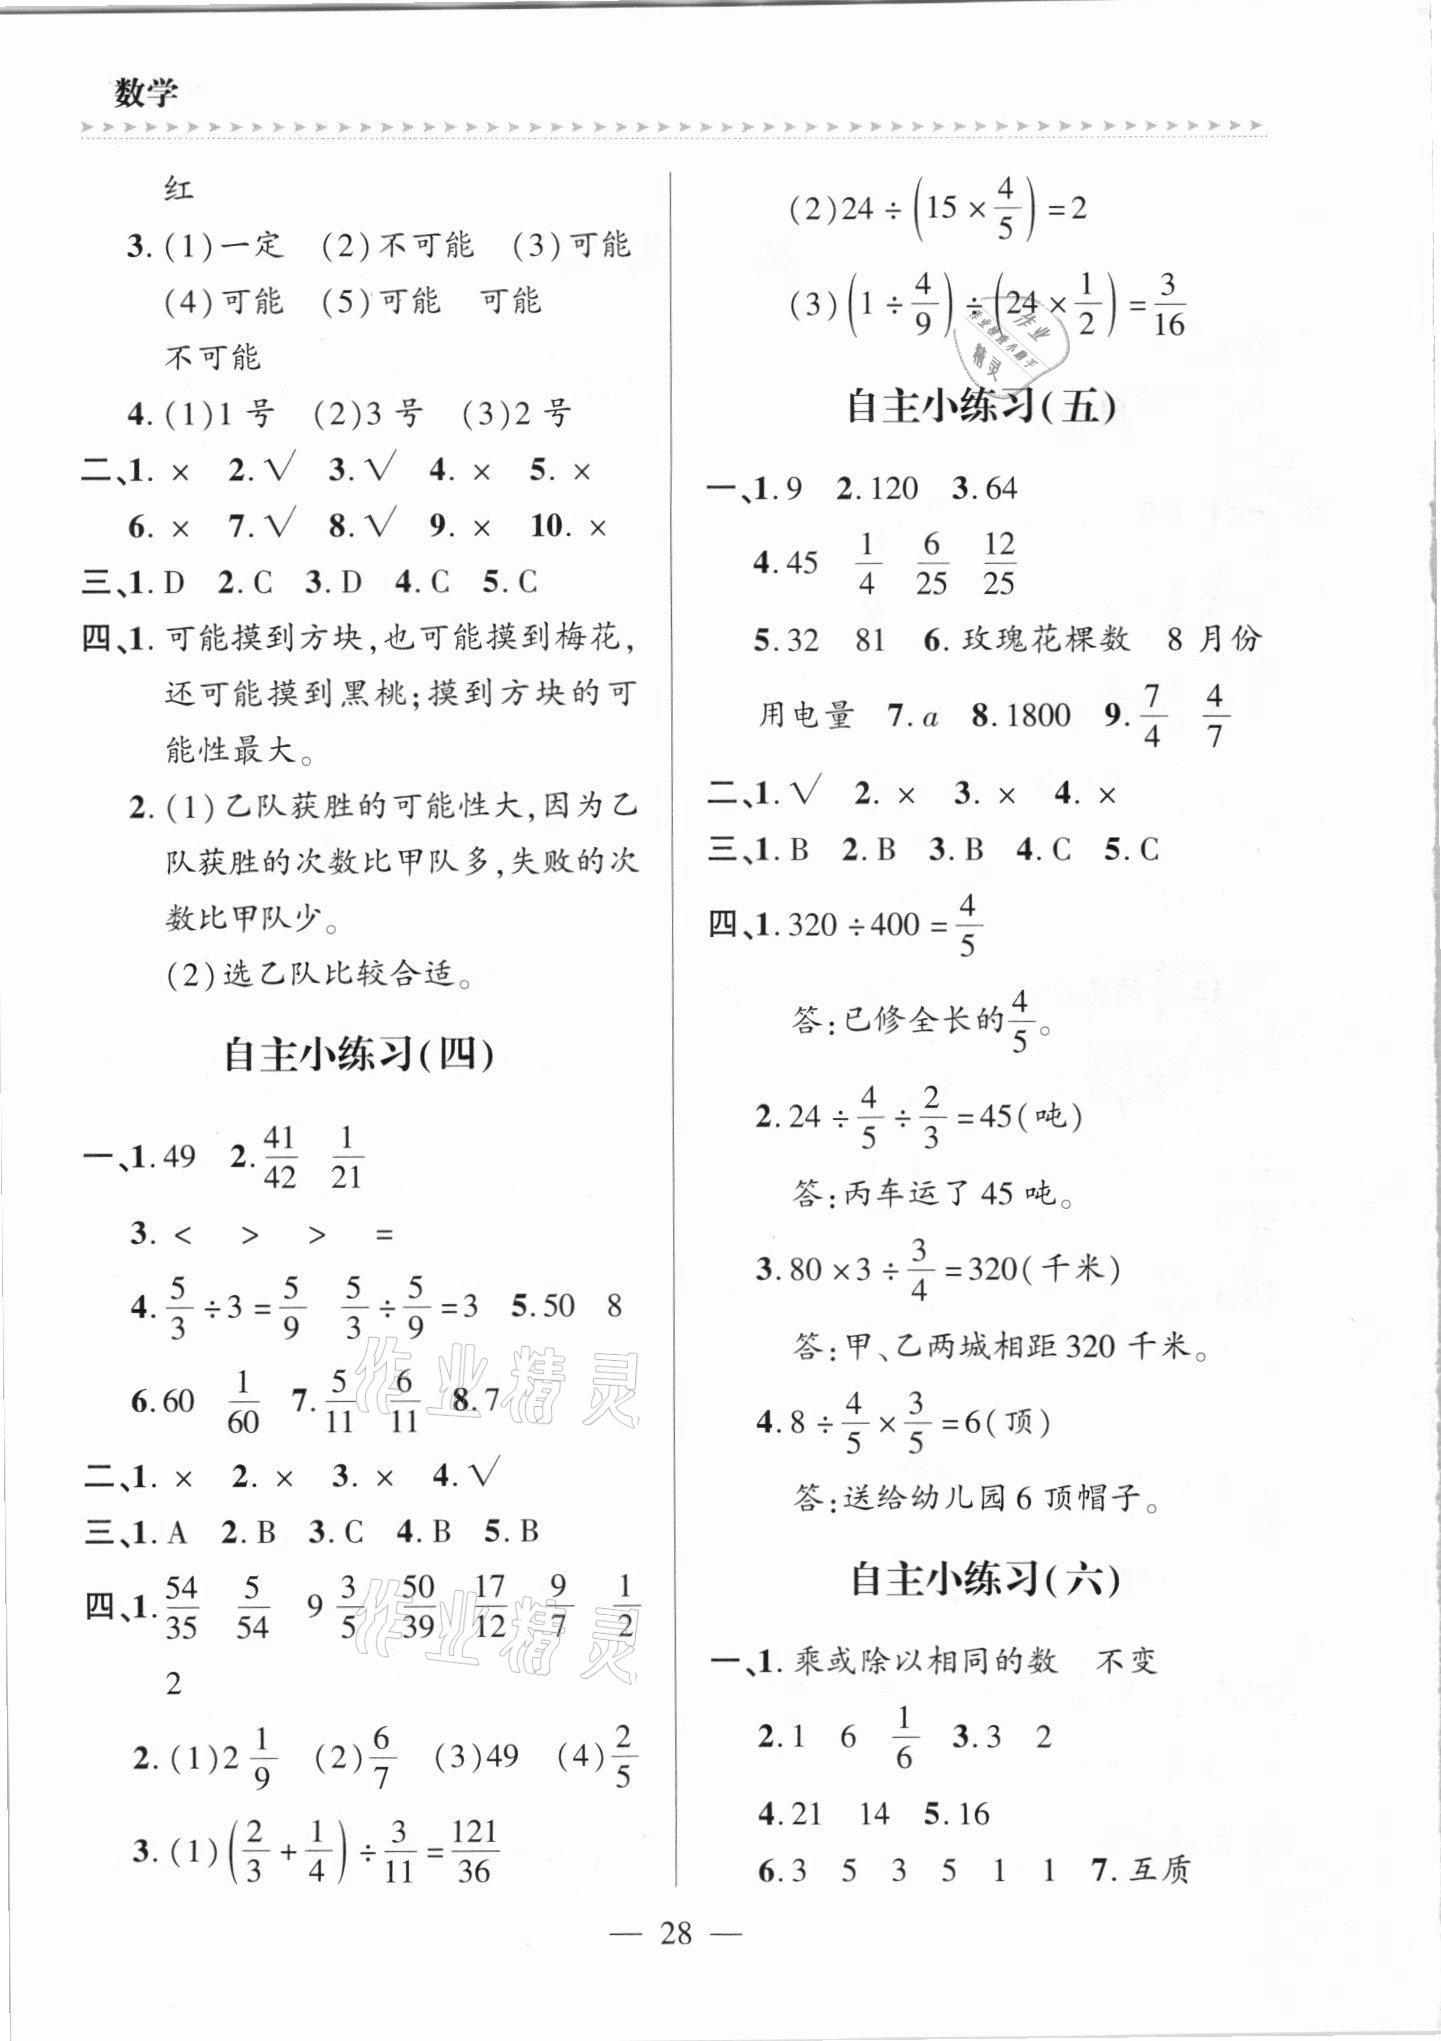 数学
红
3.(1)一定 (2)不可能 (3)可能
(4)可能 (5)可能 可能
不可能
4.(1)1号 (2)3号 (3)2号
二、1. × 2.√ 3.√ 4. × 5. ×
6. × 7.√ 8.√ 9. × 10. ×
三、1. D 2. C 3. D 4. C 5. C
四、1. 可能摸到方块,也可能摸到梅花,
还可能摸到黑桃;摸到方块的可
能性最大。
2.(1)乙队获胜的可能性大,因为乙
队获胜的次数比甲队多,失败的次
数比甲队少。
(2)选乙队比较合适。
自主小练习(四)
一、1. 49 2. 41/42 1/21
3. < > > =
4. 5/3÷3=5/9 5/3÷5/9=3 5. 50 8
6. 60 1/60 7. 5/11 6/11 8. 7
二、1. × 2. × 3. × 4.√
三、1. A 2. B 3. C 4. B 5. B
四、1. 54/35 5/54 9 3/5 50/39 17/12 9/7 1/2
2
2.(1)2 1/9 (2)6/7 (3)49 (4)2/5
3.(1)(2/3+1/4)÷3/11=121/36
(2)24÷(15×4/5)=2
(3)(1÷4/9)÷(24×1/2)=3/16
自主小练习(五)
一、1. 9 2. 120 3. 64
4. 45 1/4 6/25 12/25
5. 32 81 6. 玫瑰花棵数 8月份
用电量 7. a 8. 1800 9. 7/4 4/7
二、1.√ 2. × 3. × 4. ×
三、1. B 2. B 3. B 4. C 5. C
四、1. 320÷400=4/5
答:已修全长的4/5。
2. 24÷4/5÷2/3=45(吨)
答:丙车运了45吨。
3. 80×3÷3/4=320(千米)
答:甲、乙两城相距320千米。
4. 8÷4/5×3/5=6(顶)
答:送给幼儿园6顶帽子。
自主小练习(六)
一、1. 乘或除以相同的数 不变
2. 1 6 1/6 3. 3 2
4. 21 14 5. 16
6. 3 5 3 5 1 1 7. 互质
— 28 —
作业精灵
作业精灵
作业
作业检查小助手
精灵